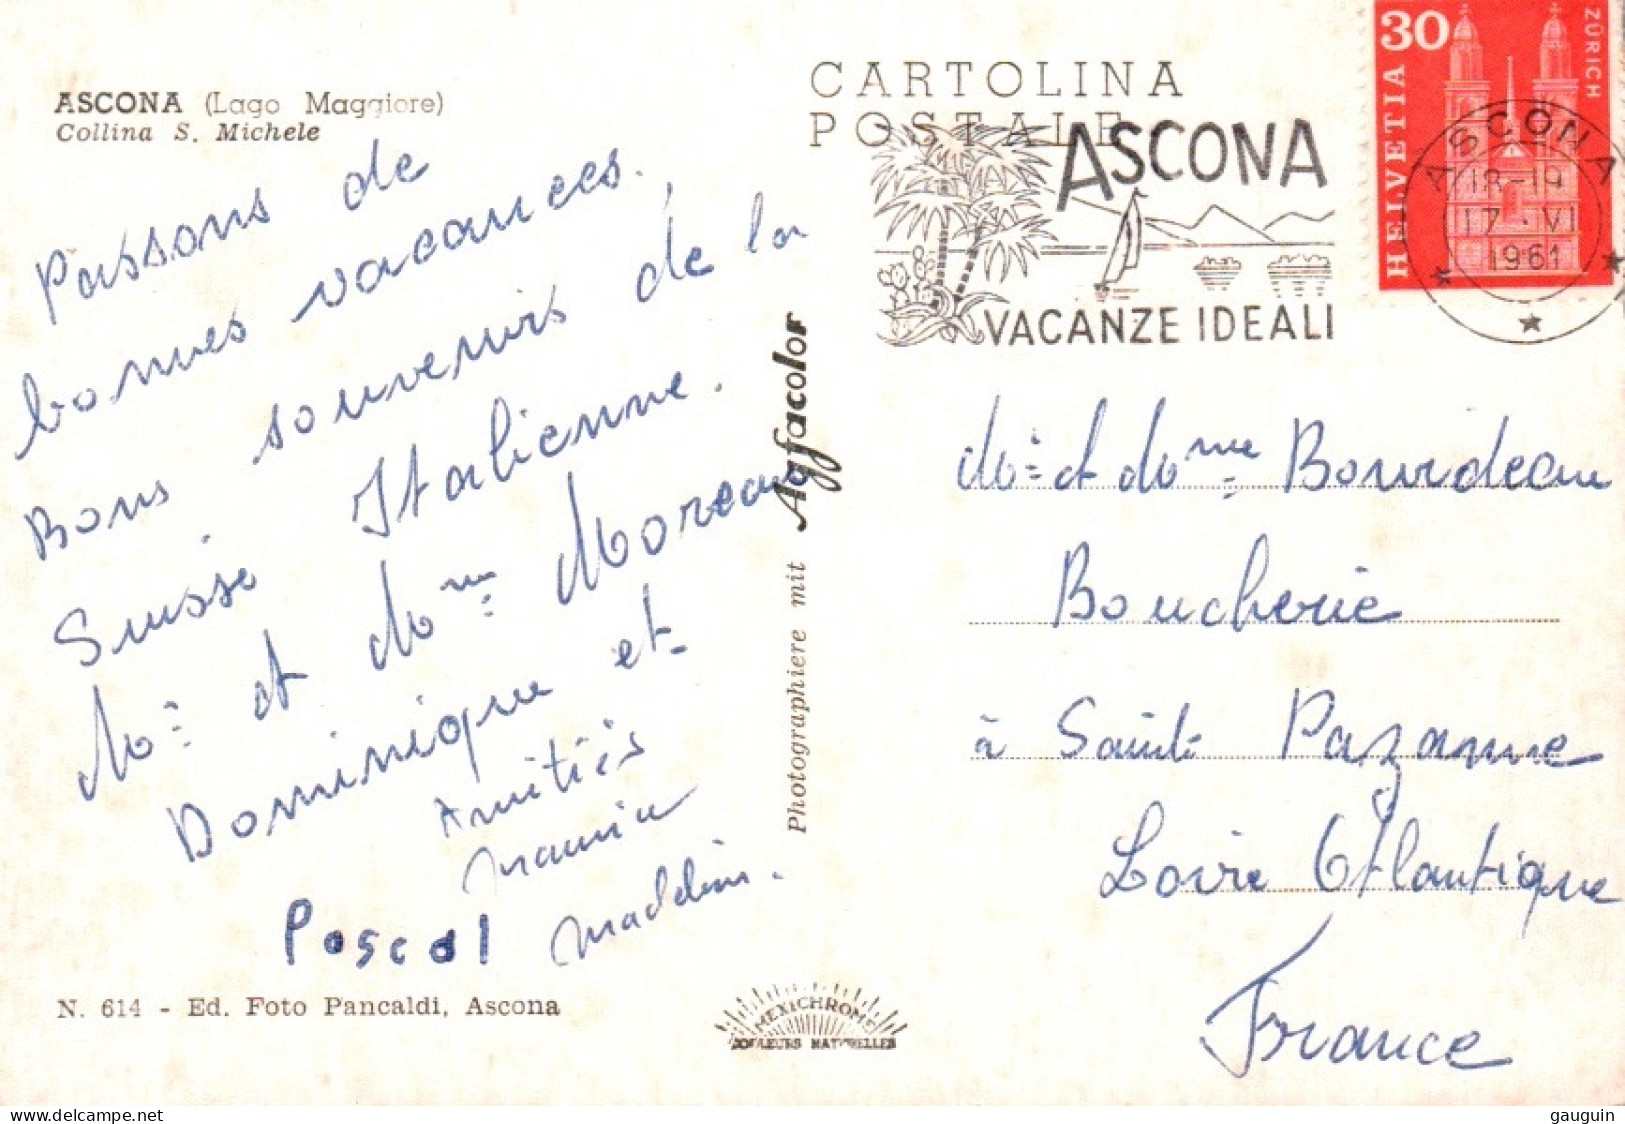 ASCONA (Lago Maggiore)
Collina S. Michele
Passons de
bonnes vacances.
Bons souvenirs de la
Suisse Italienne.
Mr et Mme Moreau
Dominique et
Amitiés
Maurice
Pascal Madeleine.
N. 614 - Ed. Foto Pancaldi, Ascona
Photographiere mit Agfacolor
MEXICHROME
COULEURS NATURELLES
CARTOLINA
POSTALE
ASCONA
VACANZE IDEALI
30
HELVETIA
ZÜRICH
ASCONA
18-19
17 · VI
1961
Mr et Mme Bourdeau
Boucherie
à Sainte Pazanne
Loire Atlantique
France
gauguin